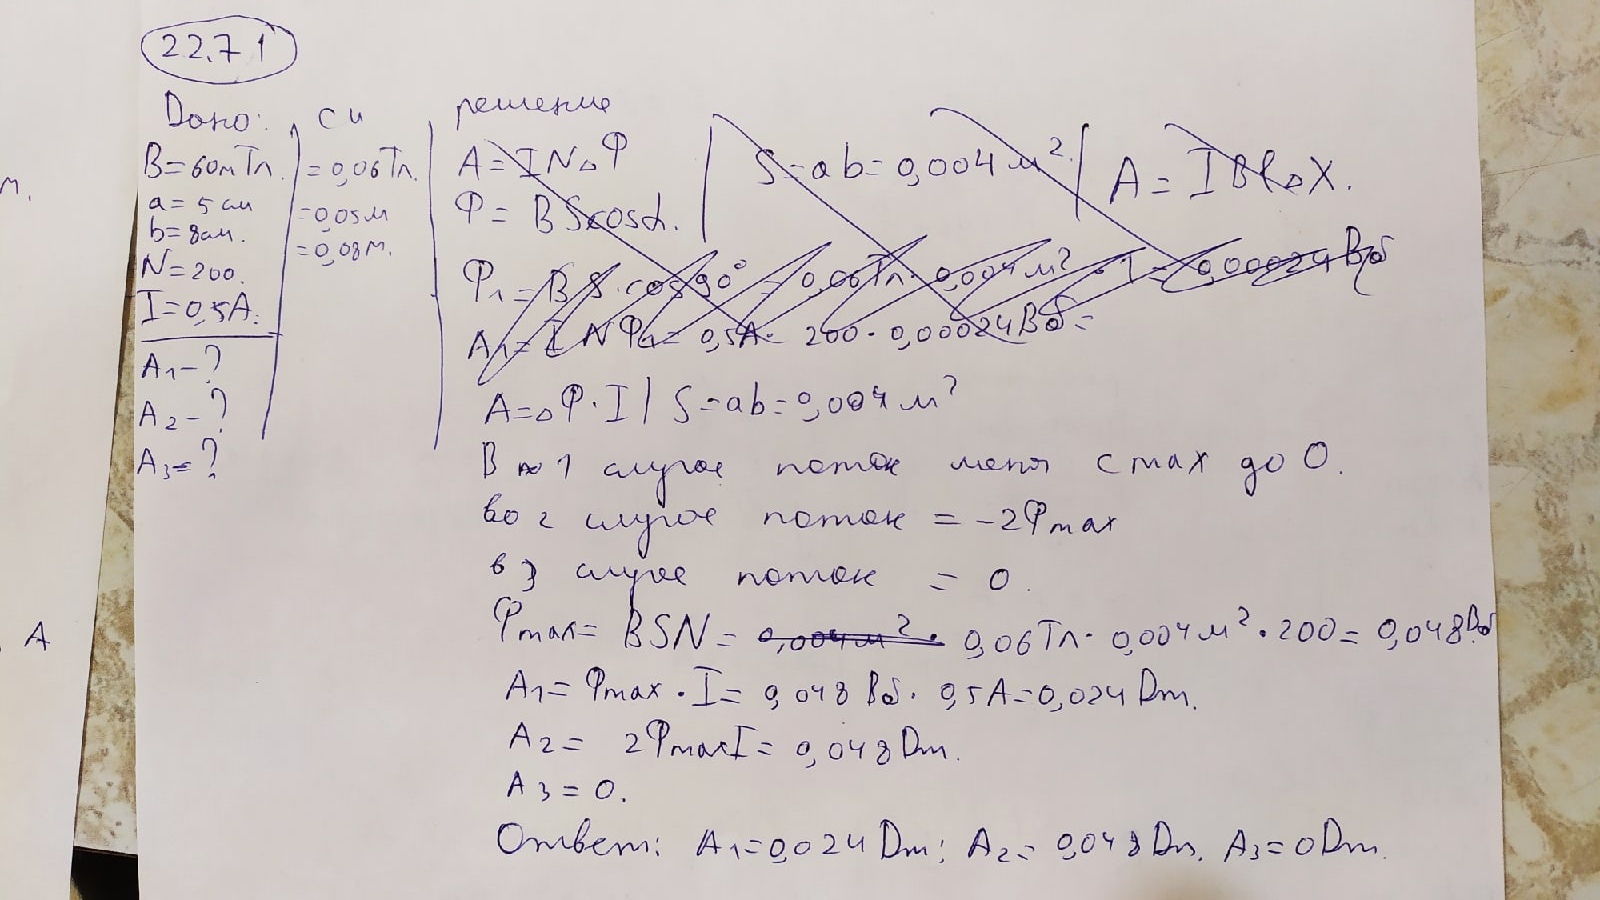 22.7.1
Дано:
B=60мТл.
a=5см
b=8см.
N=200.
I=0,5А.
A₁-?
A₂-?
A₃=?
СИ
=0,06Тл.
=0,05м
=0,08м.
решение
A=INΔФ
Ф=BScosα.
S=ab=0,004м².
A=IBlΔX.
Ф₁=BS·cos90°=0,06Тл·0,004м² = 0,00024Вб
A₁=INФ₁=0,5А·200·0,00024Вб=
A=ΔФ·I | S=ab=0,004м²
В 1 случае поток меня с max до 0.
во 2 случае поток =-2Фmax
в 3 случае поток = 0.
Фmax=BSN= 0,004м²· 0,06Тл·0,004м²·200=0,048Вб
A₁=Фmax·I=0,048Вб·0,5А=0,024Dm.
A₂= 2ФmaxI=0,048Dm.
A₃=0.
Ответ: A₁=0,024Dm; A₂=0,048Dm, A₃=0Dm.
м.
A